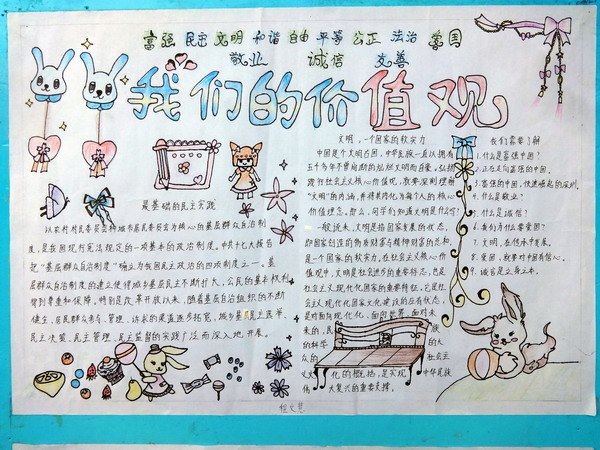 富强 民主 文明 和谐 自由 平等 公正 法治 爱国
敬业 诚信 友善
我们的价值观
最基础的民主实践
以农村村民委员会和城市居民委员会为核心的基层群众自治制
度,是我国现行宪法规定的一项基本的政治制度。中共十七大报告
把"基层群众自治制度"确立为我国民主政治的四项制度之一。基
层群众自治制度的建立使得城乡基层民主不断扩大,公民的基本权利
得到尊重和保障。特别是改革开放以来,随着基层自治组织的不断
健全,居民群众参与、管理、诉求的渠道逐步拓宽,城乡基层民主选举、
民主决策、民主管理、民主监督的实践广泛而深入地开展。
文明,一个国家的软实力
中国是个文明古国,中华民族一直以拥有
五千多年不曾间断的灿烂文明而自豪。弘扬
践行社会主义核心价值观,就要深刻理解
"文明"的内涵,并将其内化为每个人的核心
价值理念。那么,同学们知道文明是什么吗?
一般说来,文明是指国家发展的状态,
即国家创造的物质财富与精神财富的总和,
是一个国家的软实力。在社会主义核心价
值观中,文明是社会进步的重要标志,也是
社会主义现代化国家的重要特征。它是社
会主义现代化国家文化建设的应有状态,
是对面向现代化、面向世界、面向未
来的,民
的科学 的大
众的 社会主
义文 化的概括,是实现 中华民族
伟 大复兴的重要支撑。
我们需要了解
1.什么是富强中国?
2.正在走向富强的中国。
3.富强的中国,快速崛起的深圳。
4.什么是敬业?
5.什么是诚信?
6.我们为什么要爱国?
7.文明,在传承中发展。
8.爱国,就要对中国有信心。
9.诚实是立身之本。